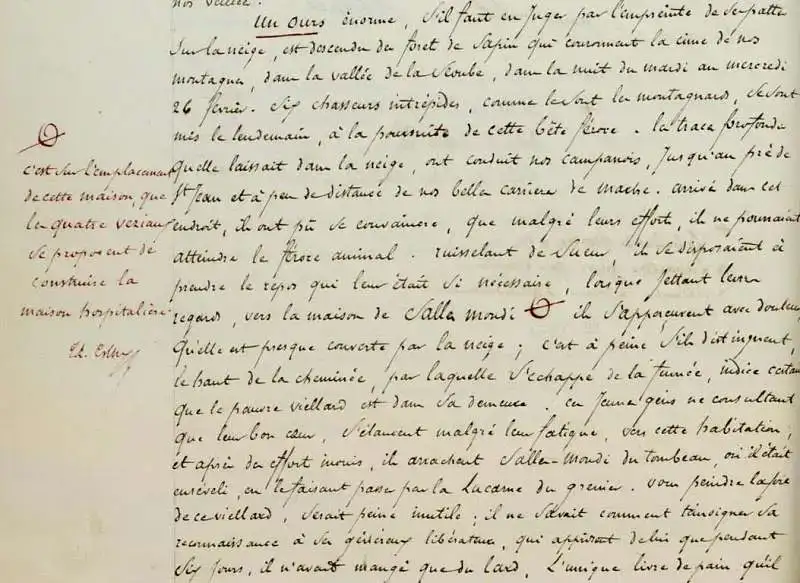 nos vallées.
Un Ours énorme, S'il faut en Juger par l'empreinte de Sa patte
Sur la neige, est descendu des foret de Sapin qui couronnent la cime de nos
montagnes, dans la vallée de la Seoube, dans la nuit du mardi au mercredi
26 février. Six chasseurs intrépides, comme le sont les montagnards, Se sont
mis le lendemain, à la poursuite de cette bête féroce. la trace profonde
Quelle laissait dans la neige, ont conduit nos campanois, Jusqu'au pré de
St Jean et à peu de distance de nos belles carrière de marbre. arrivé dans cet
endroit, ils ont pû Se convaincre, que malgré leurs efforts, ils ne pourraient
atteindre le féroce animal. ruisselant de Sueur, ils Se disposaient à
prendre le repos qui leur était Si nécessaire, lorsque Jettant leurs
regards, vers la maison de Salles mondi ils S'apperçurent avec douleur
Qu'elle est presque couverte par la neige; c'est à peine S'ils distinguent,
le haut de la cheminée, par laquelle S'échappe de la fumée, indice certain
que le pauvre viellard est dans Sa demeure. ces Jeunes gens ne consultant
que leur bon cœur, S'élancent malgré leur fatigue, vers cette habitation;
et après des effort inouis, ils arrachent Salles-Mondi du tombeau, où il était
enseveli, en le faisant passer par la Lucarne du grenier. vous peindre la joie
de ce viellard, Serait peine inutile; il ne Savait comment témoigner Sa
reconnaissance à Ses généreux libérateurs, qui apprirent de lui que pendant
Six Jours, il n'avait mangé que du lard. L'unique livre de pain qu'il
c'est Sur l'emplacement
de cette maison, que
les quatre veziaux
Se proposent de
construire la
maison hospitalière.